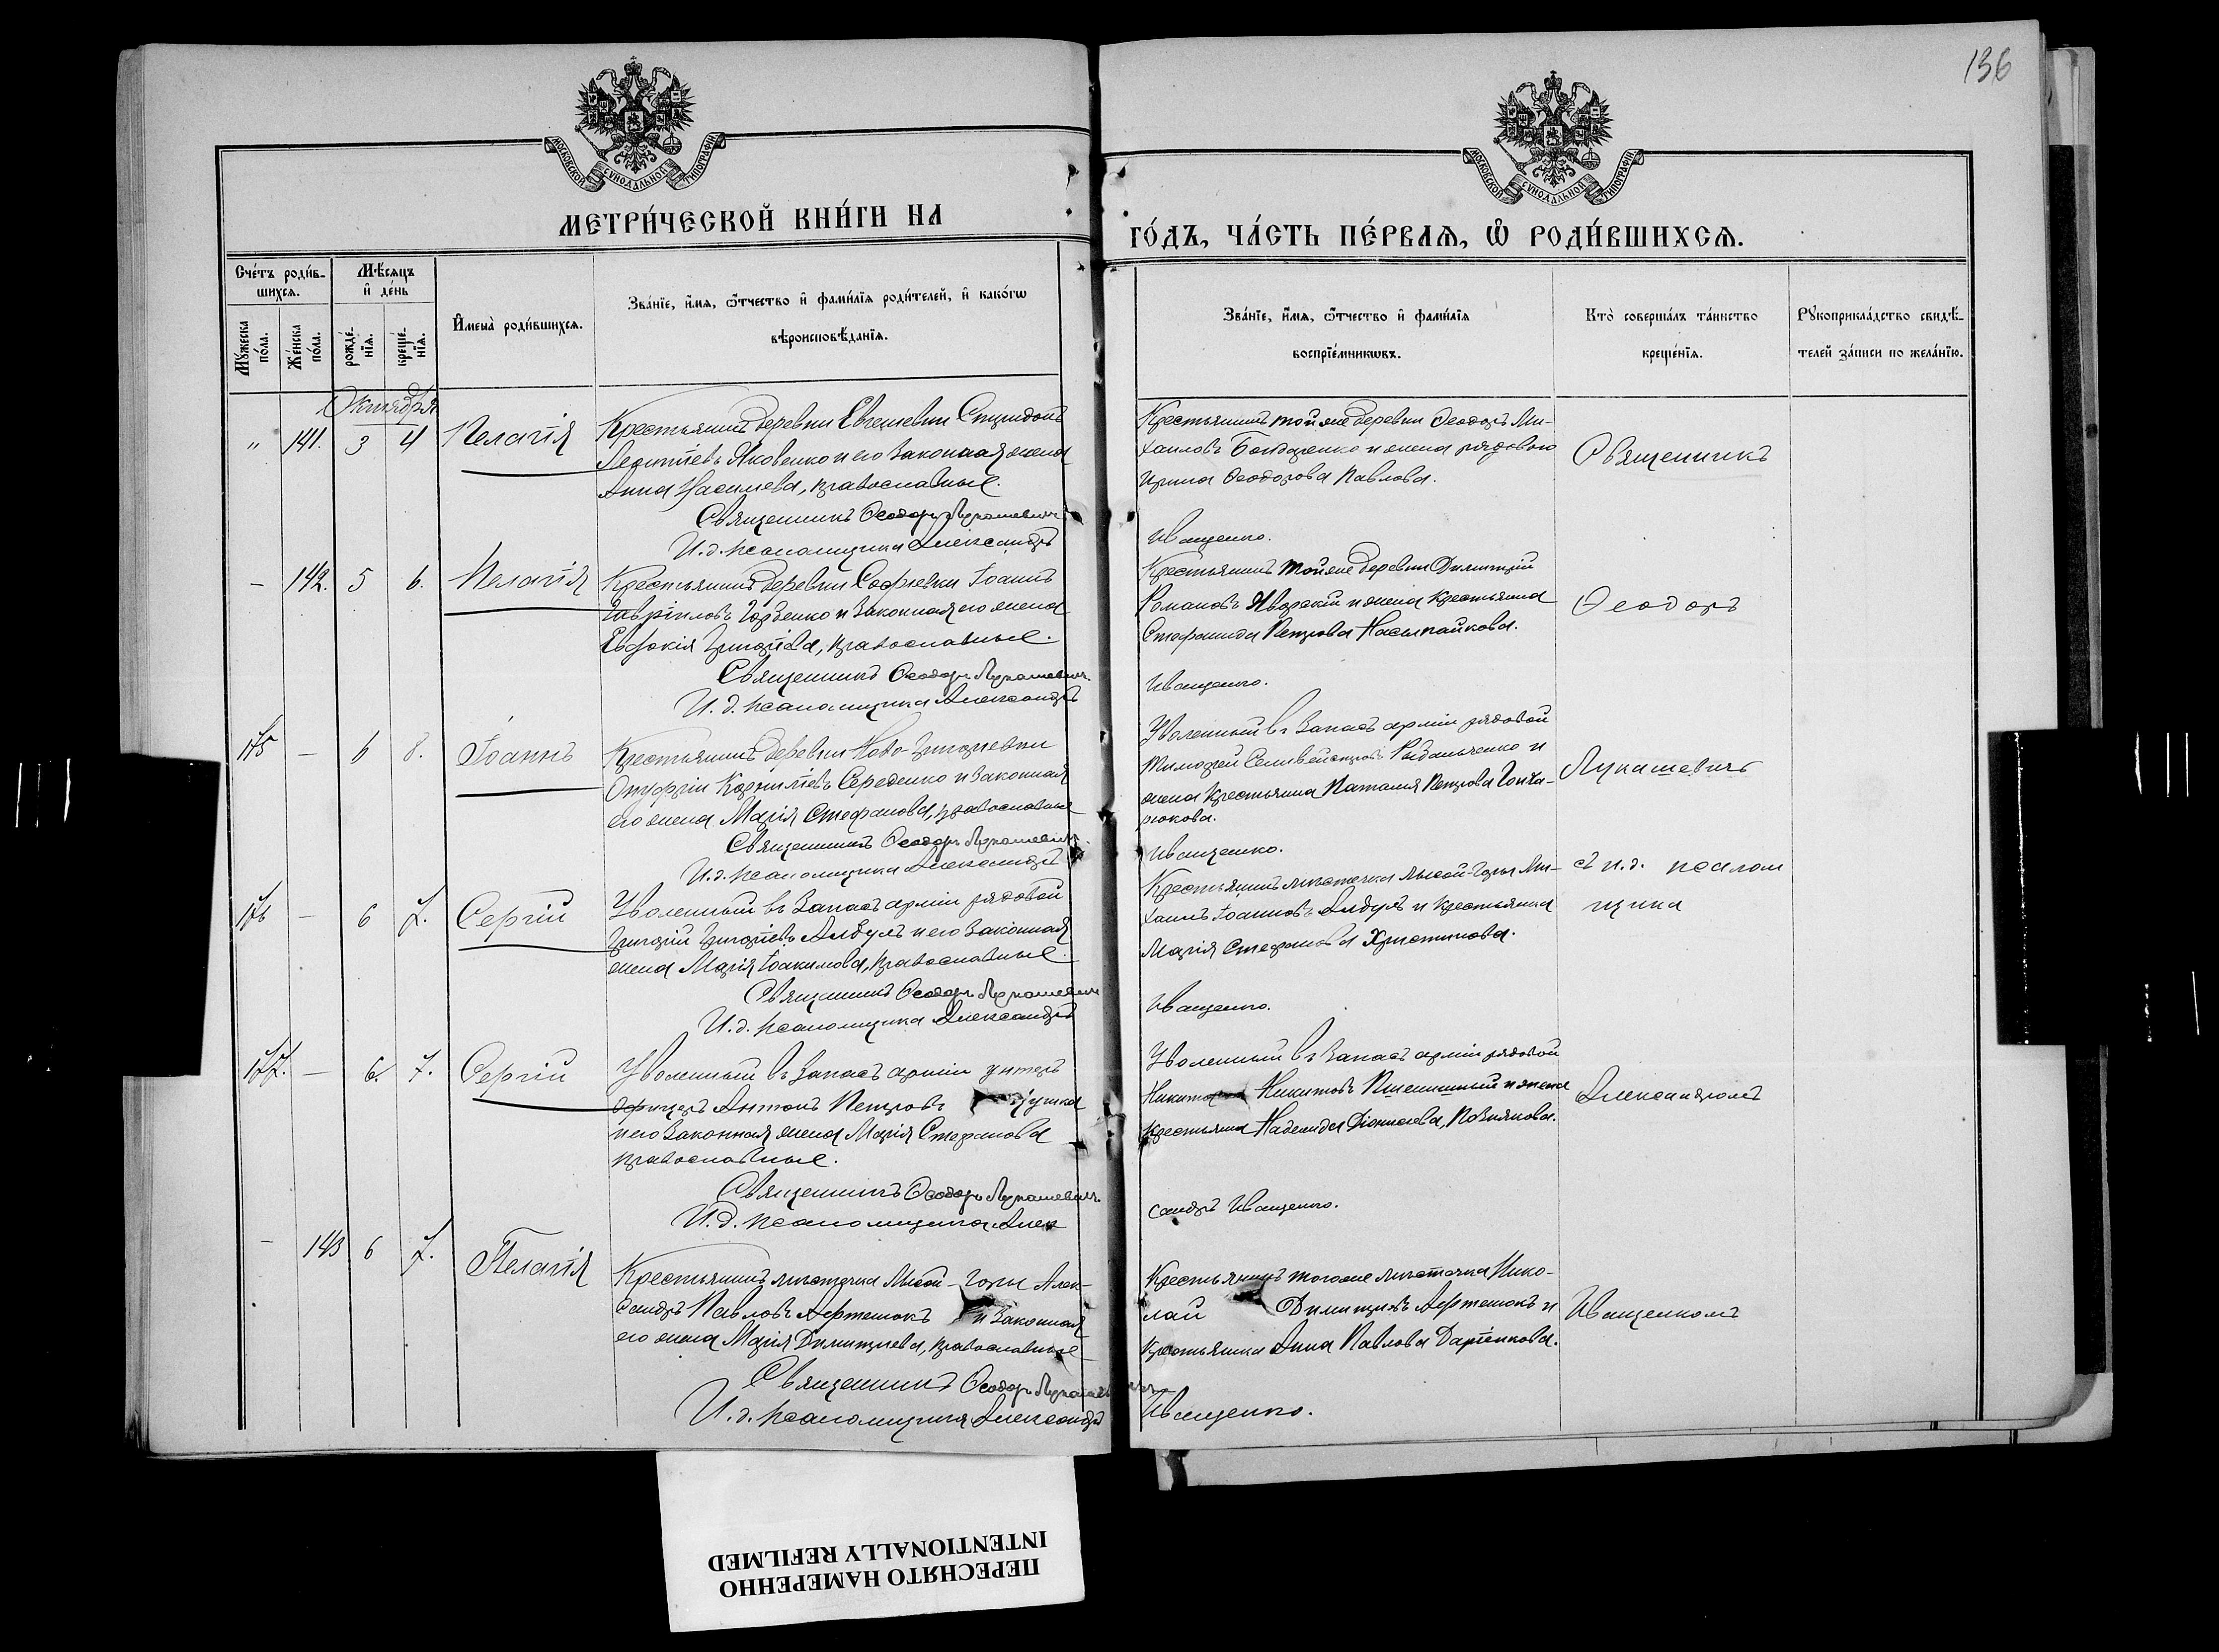 136
МОСКОВСКОЙ СУНОДАЛЬНОЙ ТИПОГРАФІИ
МОСКОВСКОЙ СУНОДАЛЬНОЙ ТИПОГРАФІИ
МЕТРИ́ЧЕСКОЙ КНИ́ГИ НА
ГО́ДЪ, ЧА́СТЬ ПЕ́РВАЯ, Ѡ҆ РОДИ́ВШИХСЯ.
Сче́тъ роди́в-
шихся.
Мѣ́сяцъ
и҆ де́нь
Мꙋ́жеска по́ла.
Же́нска по́ла.
рожде́-
нїя.
креще́-
нїя.
И҆мена̀ роди́вшихся.
Зва́нїе, и҆́мя, ѻ҆́тчество и҆ фами́лїя роди́телей, и҆ како́гѡ
вѣроисповѣ́данїя.
Зва́нїе, и҆́мя, ѻ҆́тчество и҆ фами́лїя
воспрїе́мникѡвъ.
Кто̀ соверша́лъ та́инство
креще́нїя.
Рꙋкоприкла́дство свидѣ́-
телей за́писи по жела́нїю.
Октября
" 141. 3 4 Пелагія
Крестьянинъ деревни Евгеневки Спиридонъ
Леонтіевъ Яковенко и его законная жена
Анна, православные.
Священникъ Ѳеодоръ Лукашевичъ
И.д. псаломщика Александръ
Крестьянинъ той же деревни Ѳеодоръ Ми-
хаиловъ Бондаренко и жена рядового
Ирина Ѳеодорова Павлова.
Иващенко.
Священникъ
— 142. 5 6. Пелагія
Крестьянинъ деревни Софіевки Іоаннъ
Гавріиловъ Горденко и законная его жена
Евдокія Григоріева, православные.
Священникъ Ѳеодоръ Лукашевичъ.
И.д. псаломщика Александръ
Крестьянинъ той же деревни Димитрій
Романовъ Яворскій и жена крестьянина
Стефанида Петрова Насыпайкова.
Иващенко.
Ѳеодоръ
175 — 6 8. Іоаннъ
Крестьянинъ деревни Ново-Григорьевки
Онуфрій Корниліевъ Середенко и законная
его жена Марія Стефанова, православные
Священникъ Ѳеодоръ Лукашевичъ.
И.д. псаломщика Александръ
Уволенный въ запасъ арміи рядовой
Тимоѳей Селивейстровъ Рыбальченко и
жена крестьянина Наталія Петрова Гонча-
рюкова.
Иващенко.
Лукашевичъ
176 — 6 7. Сергій
Уволенный въ запасъ арміи рядовой
Григорій Григоріевъ Албулъ и его законная
жена Марія Іоакимова, православные
Священникъ Ѳеодоръ Лукашевичъ
И.д. псаломщика Александръ
Крестьянинъ мѣстечка Лысой-Горы Ми-
хаилъ Іоанновъ Албулъ и крестьянка
Марія Стефанова Христинова.
Иващенко.
съ и.д. псалом
щика
177. — 6. 7. Сергій
Уволенный въ запасъ арміи унтеръ
офицеръ Антонъ Петровъ
и его законная жена Марія Стефанова
православные.
Священникъ Ѳеодоръ Лукашевичъ.
И.д. псаломщика Алек
Уволенный въ запасъ арміи рядовой
Никита Никитовъ Пшеничный и жена
крестьянина Надежда Діонисіева, Познякова.
сандръ Иващенко.
Александромъ
— 143 6 7. Пелагія
Крестьянинъ мѣстечка Лысой-Горы Алек-
сандръ Павловъ Афтенюкъ и законная
его жена Марія Димитріева, православные
Священникъ Ѳеодоръ Лукашевичъ
И.д. псаломщика Александръ
Крестьянинъ того же мѣстечка Нико-
лай Димитріевъ Афтенюкъ и
крестьянка Анна Павлова Даріенкова.
Иващенко.
Иващенкомъ
ПЕРЕСНЯТО НАМЕРЕННО
INTENTIONALLY REFILMED